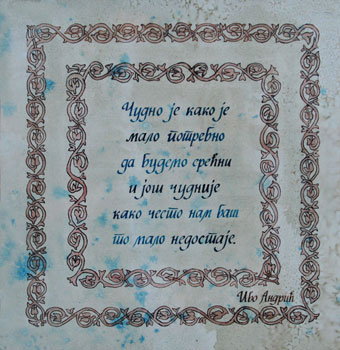 Чудно је како је
мало потребно
да будемо срећни
и још чудније
како често нам баш
то мало недостаје.
Иво Андрић